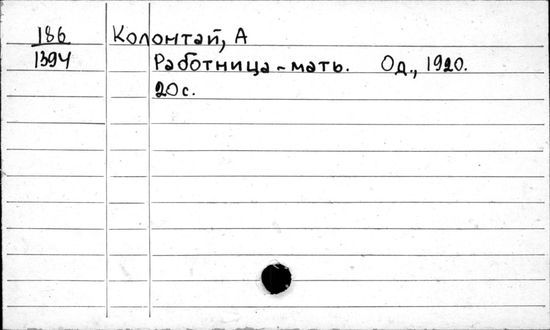 186 Колонтай, А
1394 Работница-мать. Од., 1920.
20 с.